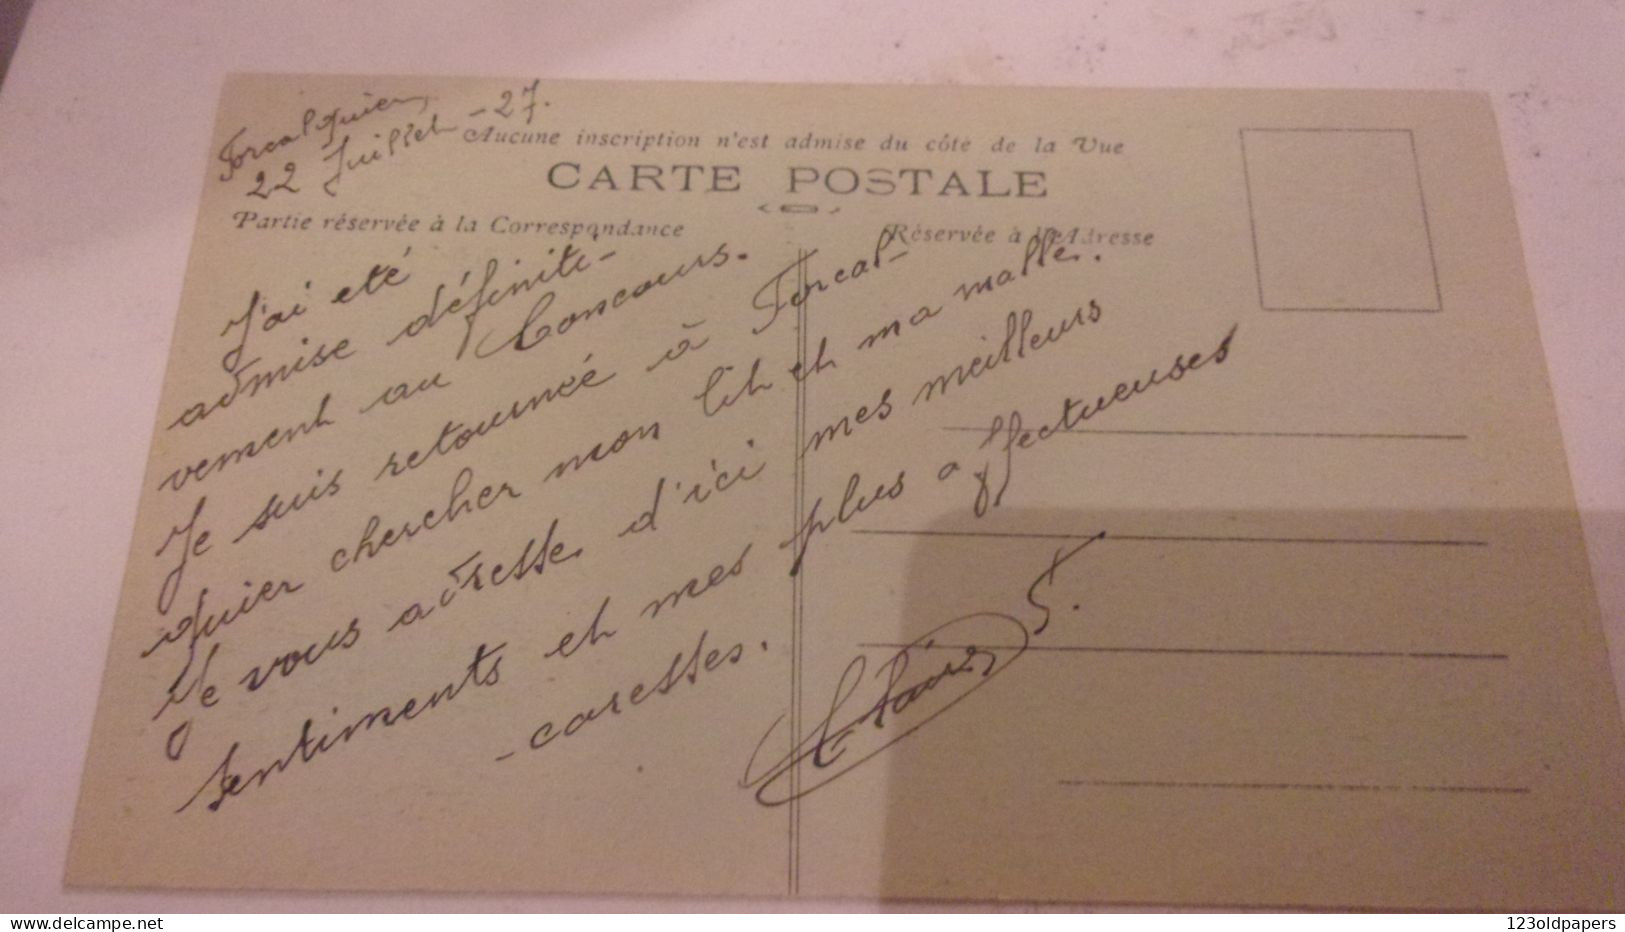 Forcalquier,
22 Juillet - 27.
Aucune inscription n'est admise du côté de la Vue
CARTE POSTALE
Partie réservée à la Correspondance
Réservée à l'Adresse
J'ai été
admise définiti-
vement au Concours.
Je suis retournée à Forcal-
quier chercher mon lit et ma malle.
Je vous adresse d'ici mes meilleurs
sentiments et mes plus affectueuses
- caresses.
S.
www.delcampe.net
123oldpapers